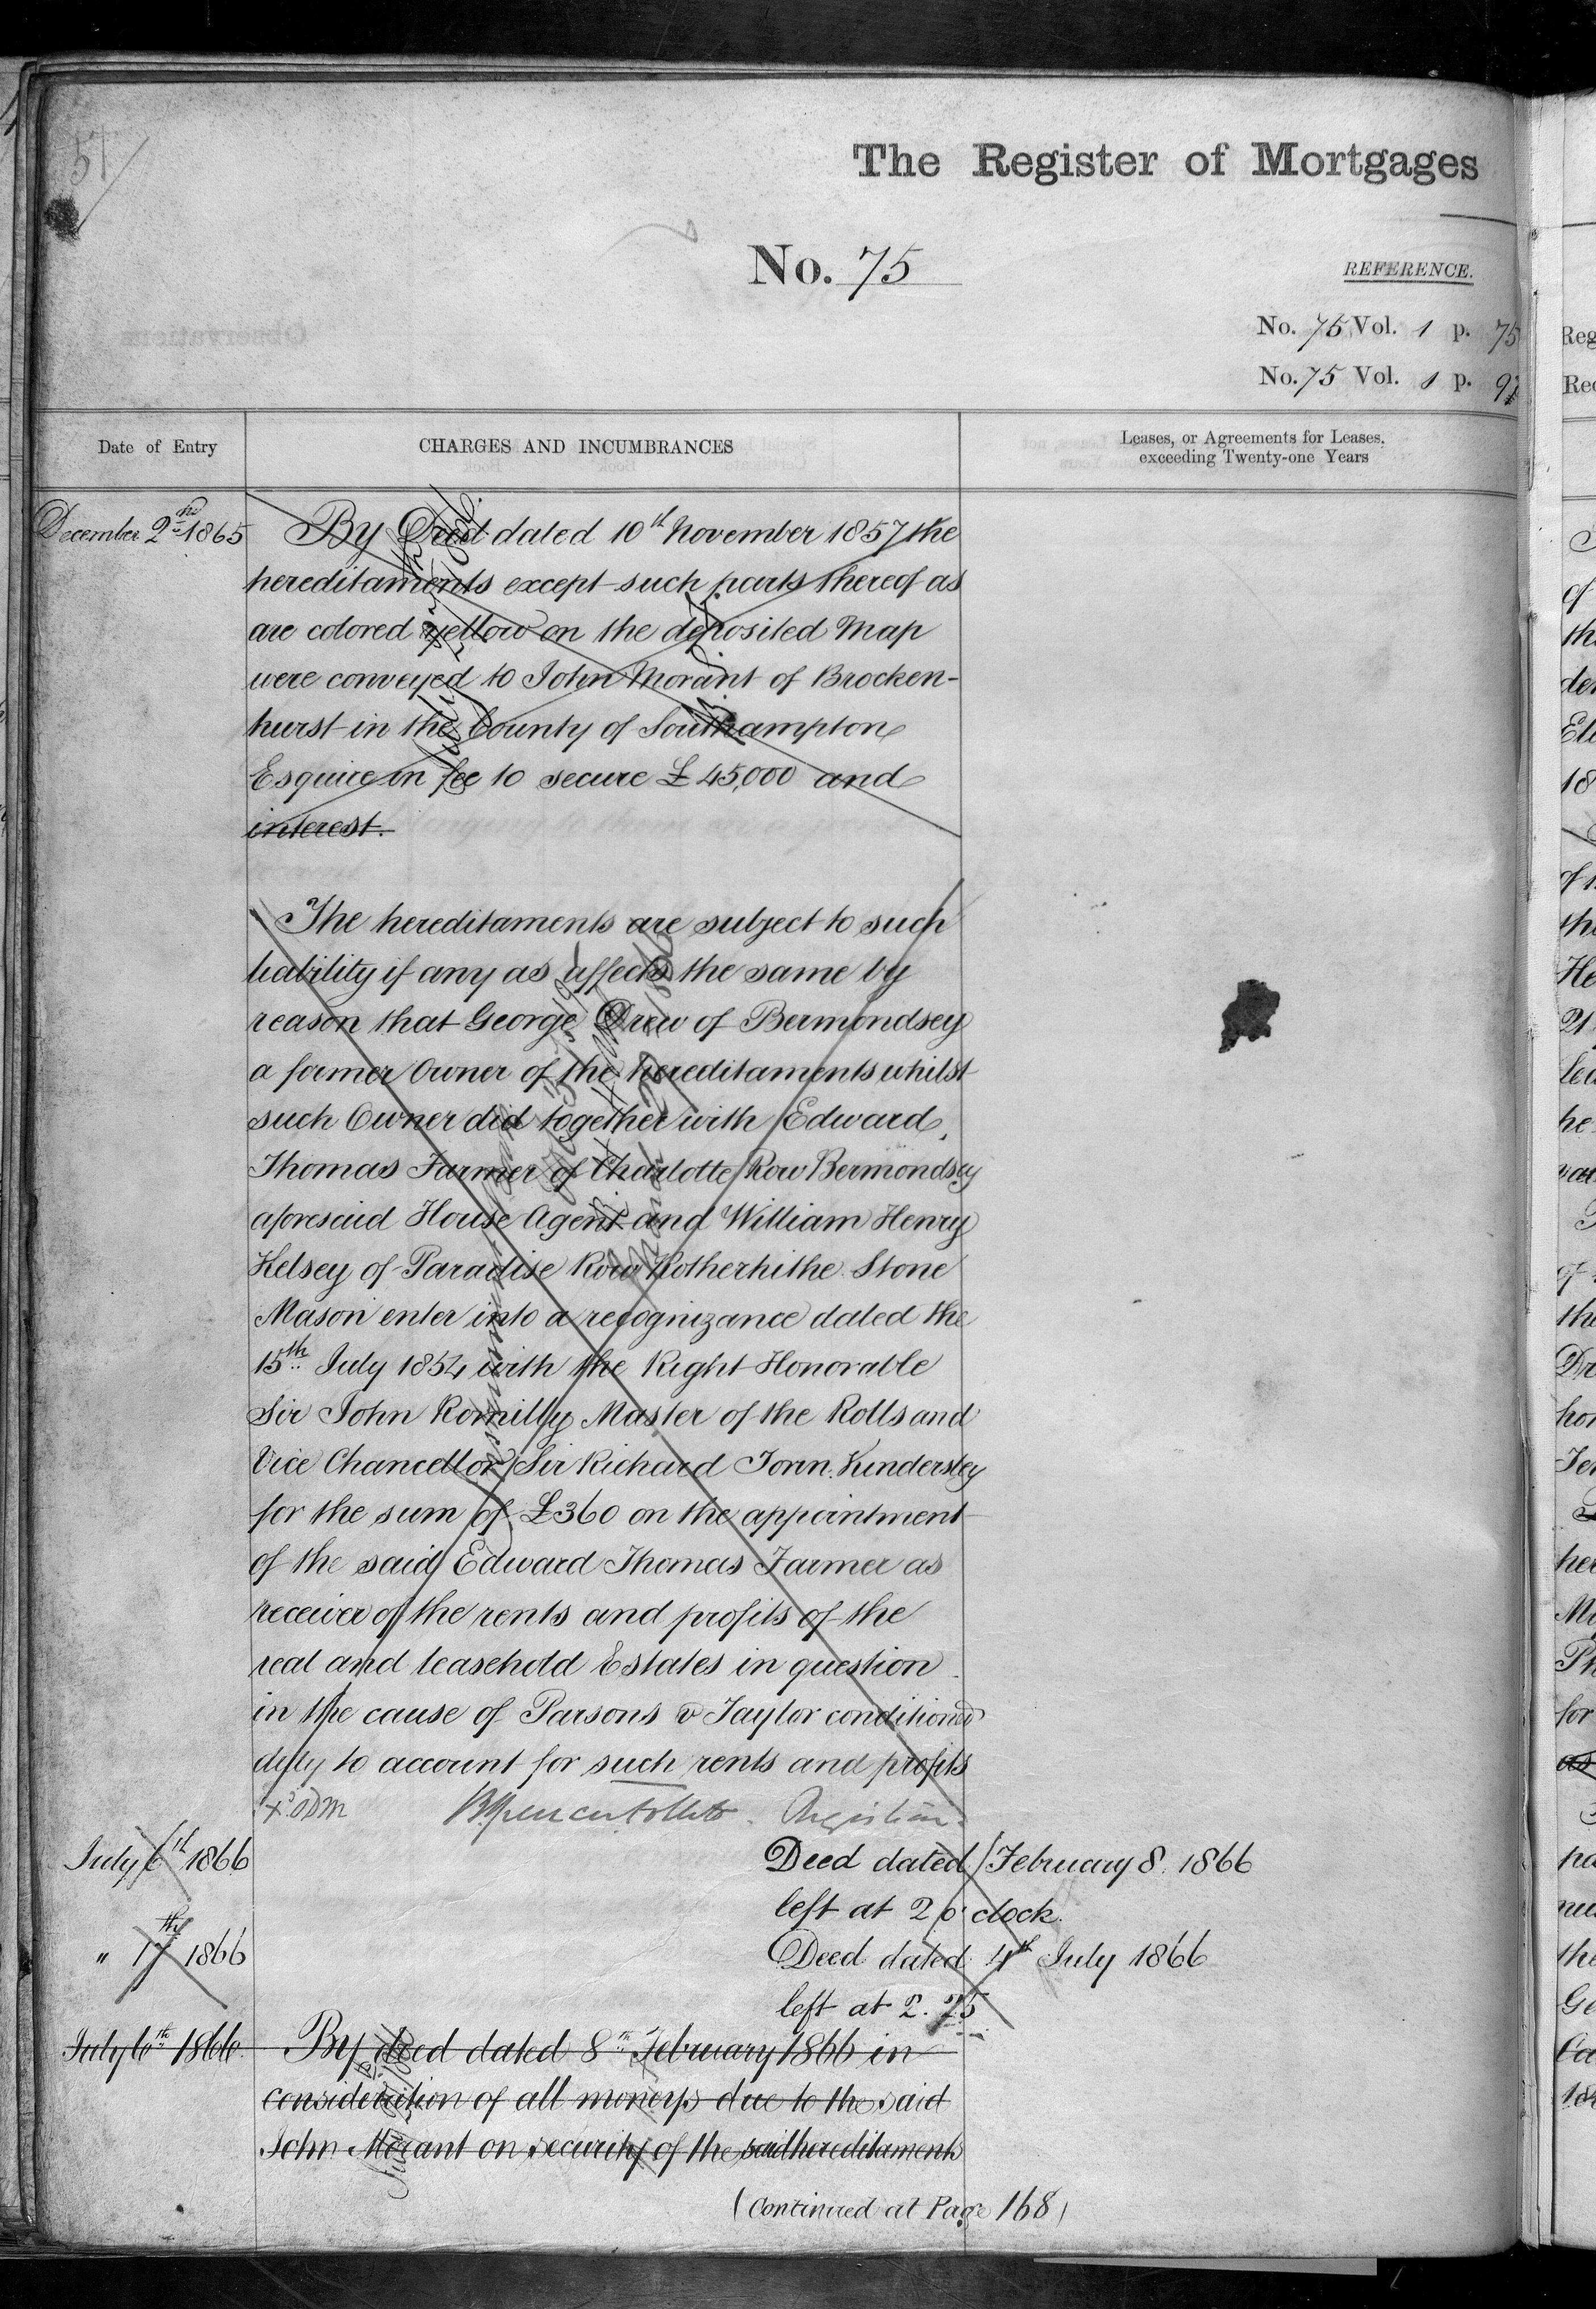 57
The Register of Mortgages
No. 75
REFERENCE.
No. 75 Vol. 1 p. 75
No. 75 Vol. 1 p. 97
Date of Entry
CHARGES AND INCUMBRANCES
Leases, or Agreements for Leases,
exceeding Twenty-one Years
December 2nd 1865
By Deed dated 10th November 1857 the
hereditaments except such parts thereof as
are colored yellow on the deposited Map
were conveyed to John Morant of Brocken-
hurst in the County of Southampton
Esquire in fee to secure £45,000 and
interest.
The hereditaments are subject to such
liability if any as affects the same by
reason that George Drew of Bermondsey
a former Owner of the hereditaments whilst
such Owner did together with Edward
Thomas Farmer of Charlotte Row Bermondsey
aforesaid House Agent and William Henry
Kelsey of Paradise Row Rotherhithe Stone
Mason enter into a recognizance dated the
15th July 1854 with the Right Honorable
Sir John Romilly Master of the Rolls and
Vice Chancellor Sir Richard Torin Kindersley
for the sum of £360 on the appointment
of the said Edward Thomas Farmer as
receiver of the rents and profits of the
real and leasehold Estates in question
in the cause of Parsons v Taylor conditioned
duly to account for such rents and profits
Registrar
July 6th 1866
Deed dated February 8. 1866
left at 2 o'clock.
" 17th 1866
Deed dated 4th July 1866
left at 2.25
July 6th 1866
By deed dated 8th February 1866 in
consideration of all moneys due to the said
John Morant on security of the said hereditaments
(Continued at Page 168)